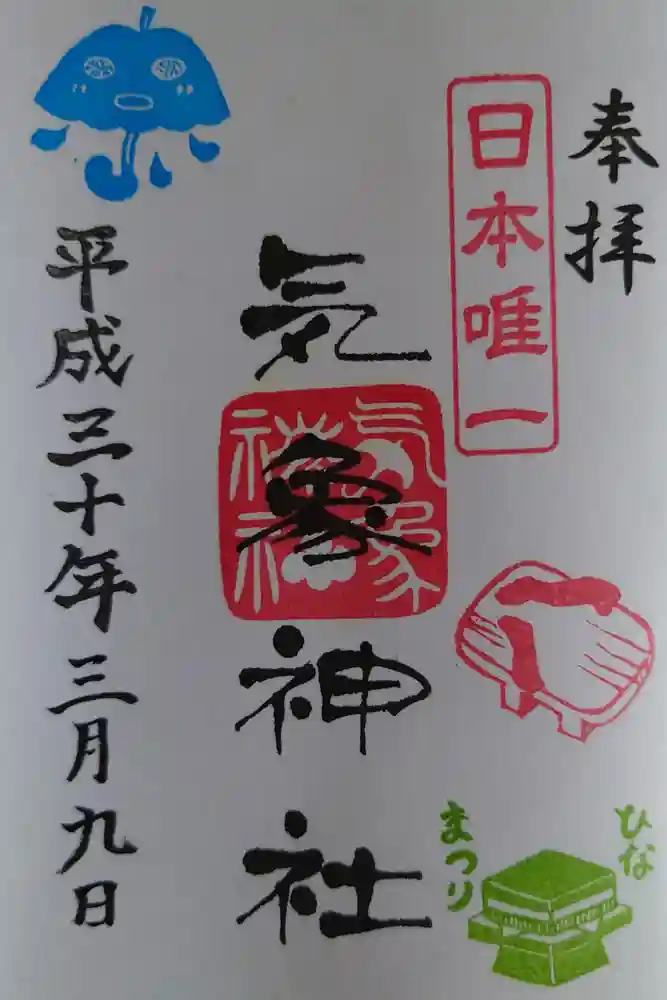 奉拝
日本唯一
気象神社
気象
神社
平成三十年三月九日
ひな
まつり